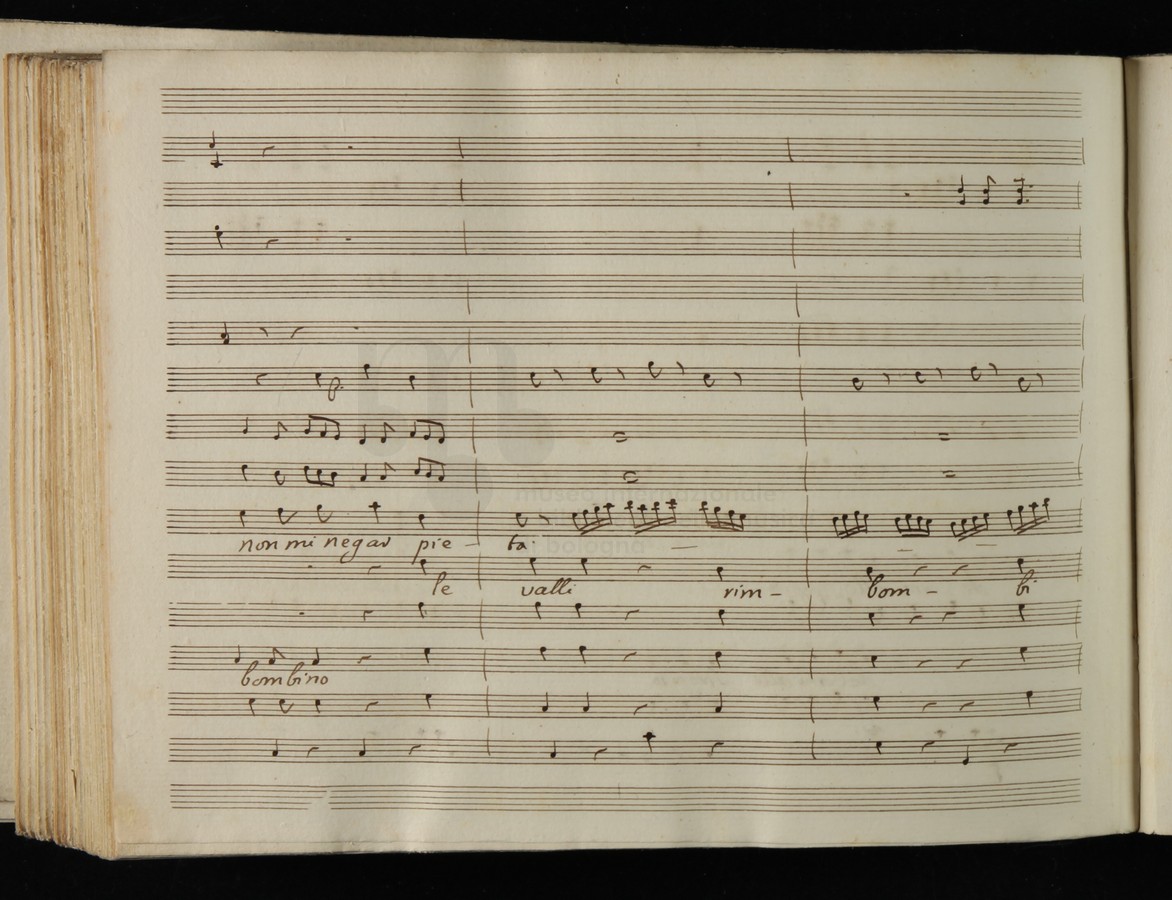 p.
museo internazionale
bologna
non mi negar pie - ta.
le valli rim - bom - bi
bombino